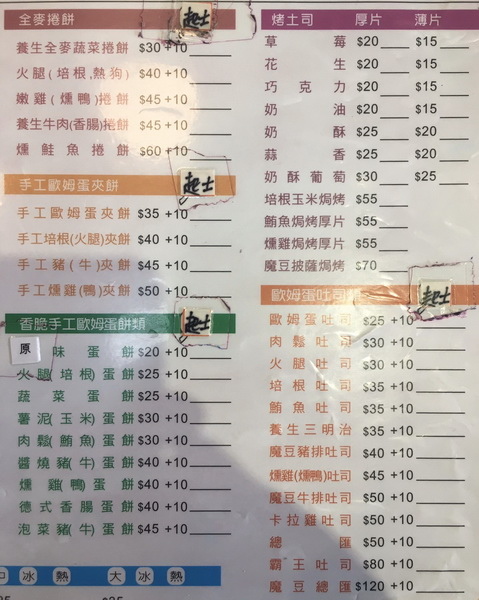 全麥捲餅 起士
養生全麥蔬菜捲餅 $30 +10
火腿(培根,熱狗) $40 +10
嫩雞(燻鴨)捲餅 $45 +10
養生牛肉(香腸)捲餅 $45 +10
燻鮭魚捲餅 $60 +10
手工歐姆蛋夾餅 起士
手工歐姆蛋夾餅 $35 +10
手工培根(火腿)夾餅 $40 +10
手工豬(牛)夾餅 $45 +10
手工燻雞(鴨)夾餅 $50 +10
香脆手工歐姆蛋餅類 起士
原味蛋餅 $20 +10
火腿(培根)蛋餅 $25 +10
蔬菜蛋餅 $25 +10
薯泥(玉米)蛋餅 $30 +10
肉鬆(鮪魚)蛋餅 $30 +10
醬燒豬(牛)蛋餅 $40 +10
燻雞(鴨)蛋餅 $40 +10
德式香腸蛋餅 $40 +10
泡菜豬(牛)蛋餅 $45 +10
中 冰 熱 大 冰 熱
$35
烤土司 厚片 薄片
草莓 $20 $15
花生 $20 $15
巧克力 $20 $15
奶油 $20 $15
奶酥 $25 $20
蒜香 $25 $20
奶酥葡萄 $30 $25
培根玉米焗烤 $55
鮪魚焗烤厚片 $55
燻雞焗烤厚片 $55
魔豆披薩焗烤 $70
歐姆蛋吐司 起士
歐姆蛋吐司 $25 +10
肉鬆吐司 $30 +10
火腿吐司 $30 +10
培根吐司 $35 +10
鮪魚吐司 $35 +10
養生三明治 $35 +10
魔豆豬排吐司 $40 +10
燻雞(燻鴨)吐司 $45 +10
魔豆牛排吐司 $50 +10
卡拉雞吐司 $50 +10
總匯 $50 +10
霸王吐司 $80 +10
魔豆總匯 $120 +10